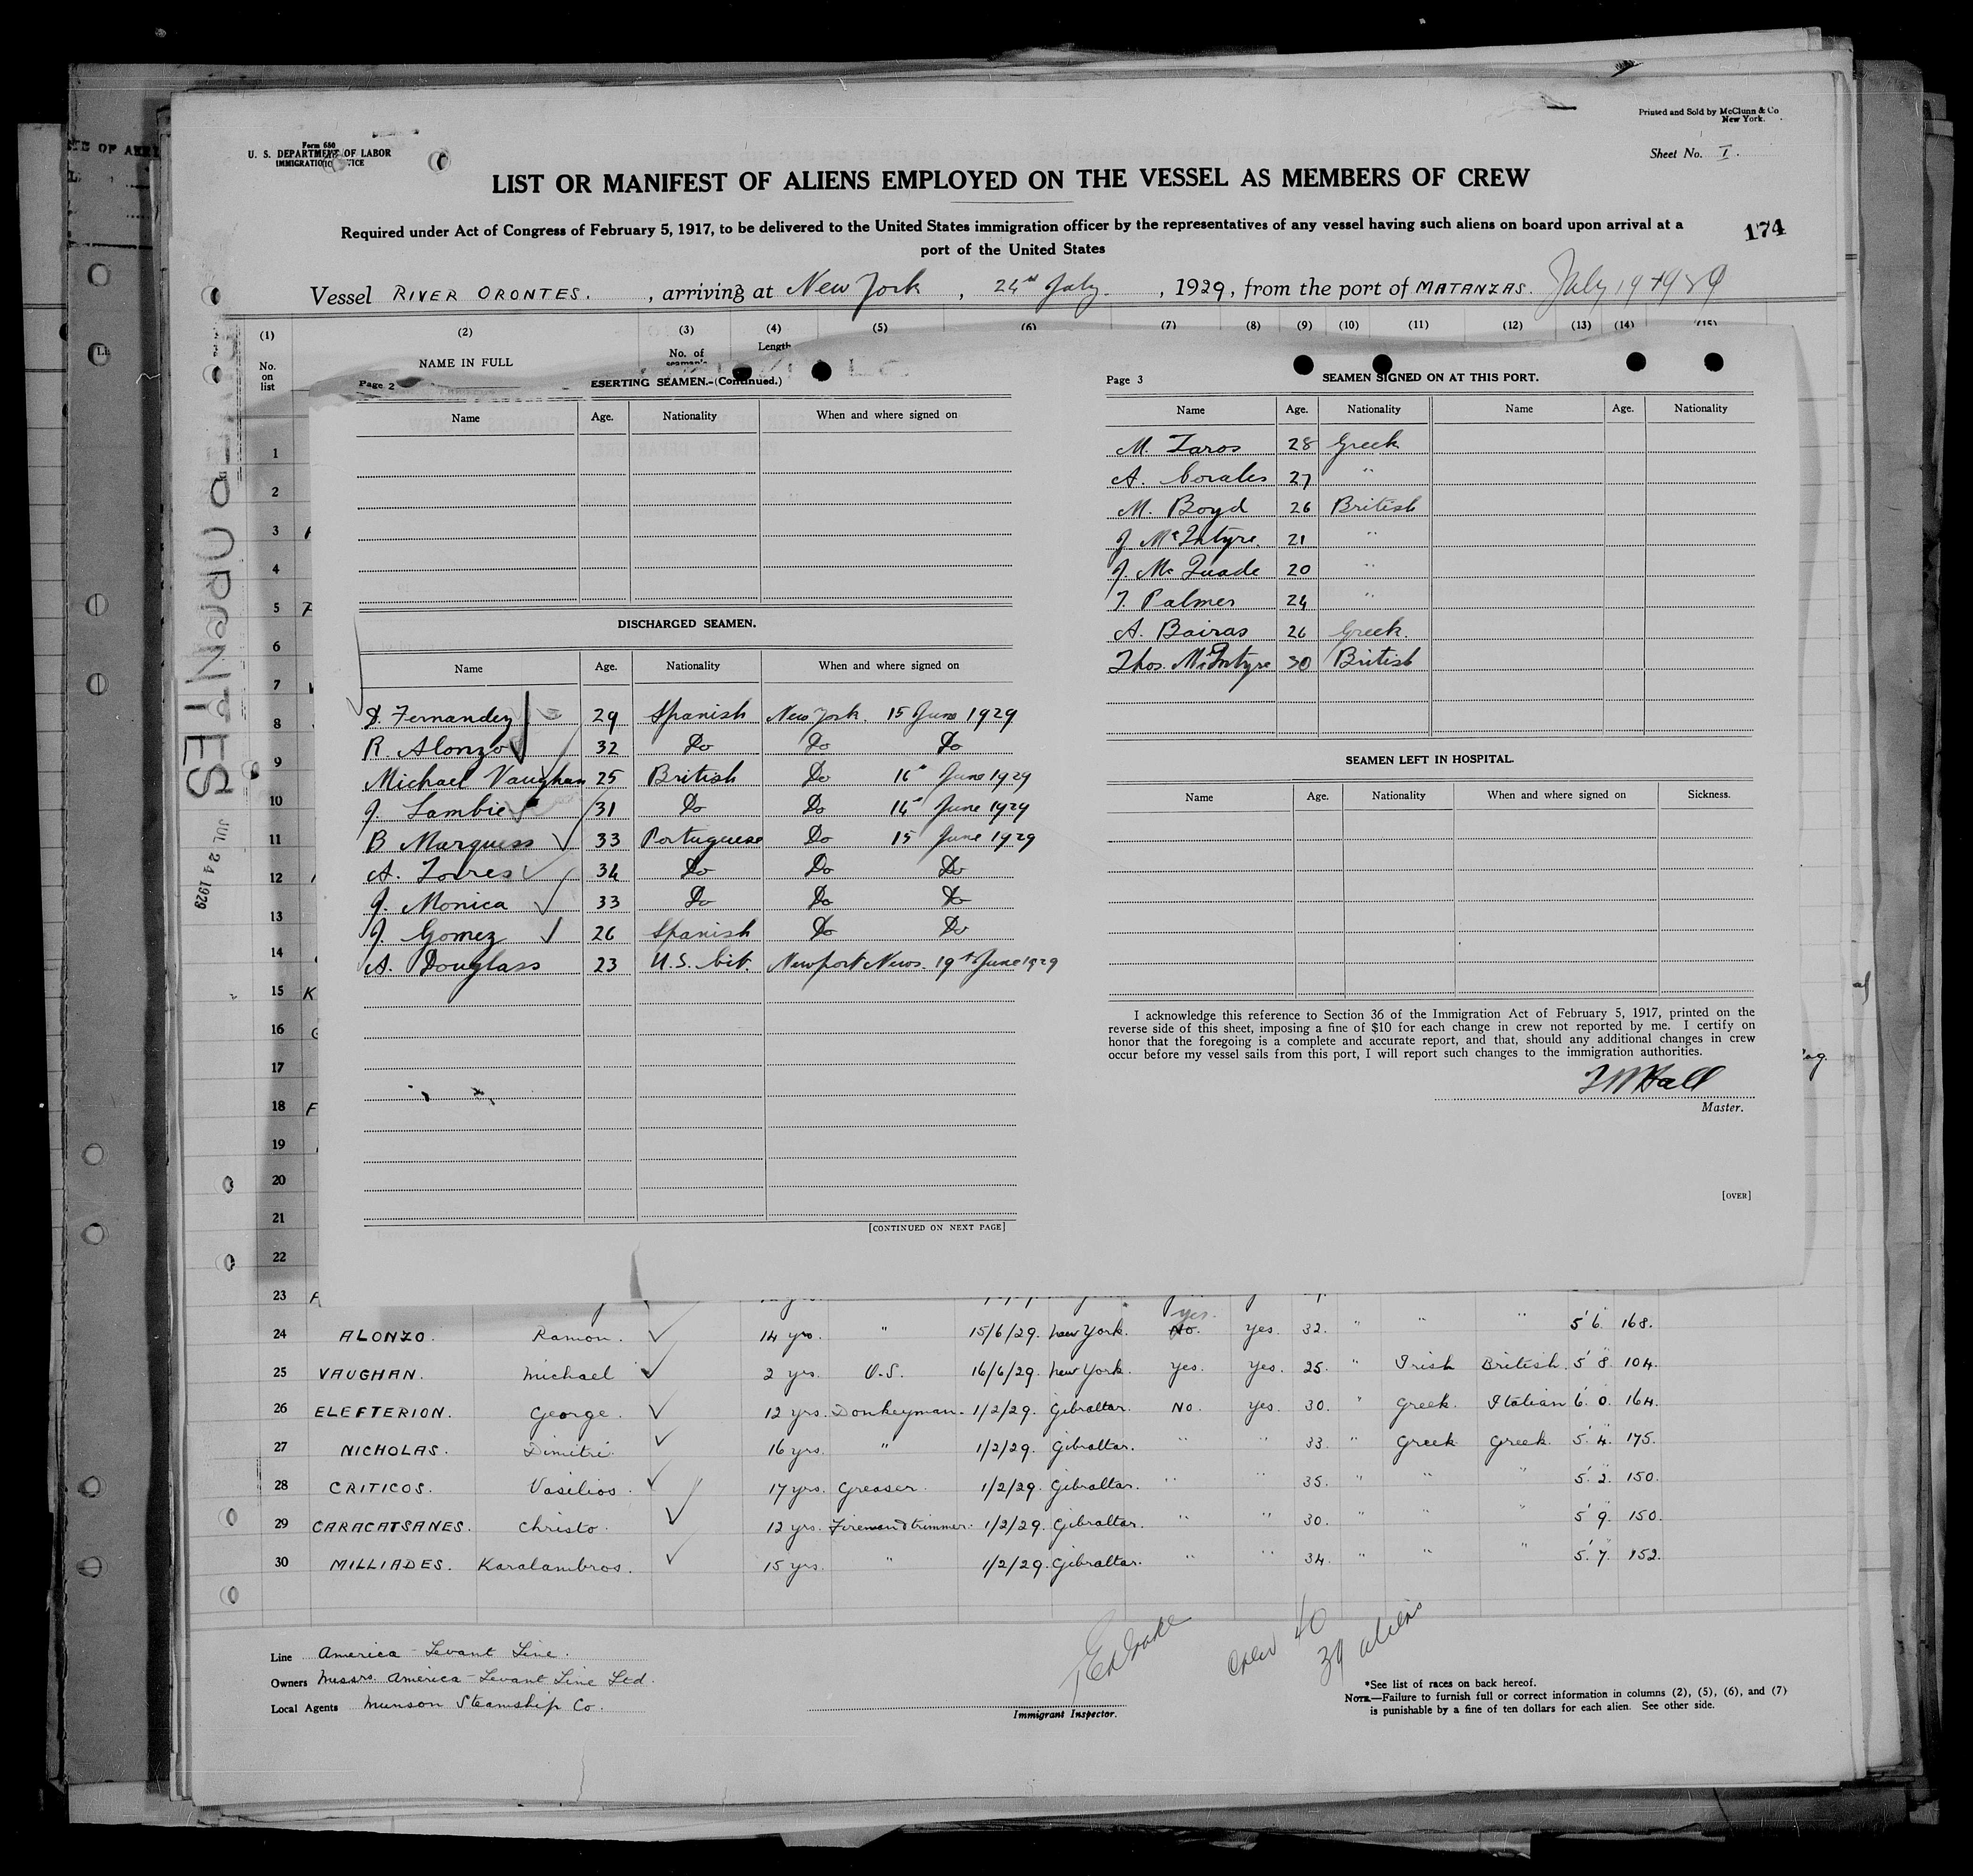 Form 680
U. S. DEPARTMENT OF LABOR
IMMIGRATION
Printed and Sold by McClunn & Co
New York.
Sheet No. I.
LIST OR MANIFEST OF ALIENS EMPLOYED ON THE VESSEL AS MEMBERS OF CREW
Required under Act of Congress of February 5, 1917, to be delivered to the United States immigration officer by the representatives of any vessel having such aliens on board upon arrival at a
port of the United States
174
Vessel RIVER ORONTES. , arriving at New York , 24th July. , 1929, from the port of MATANZAS. July 19 1929
(1) (2) (3) (4) (5) (6) (7) (8) (9) (10) (11) (12) (13) (14) (15)
No. on list
NAME IN FULL
No. of seaman's
Length
Page 2
ESERTING SEAMEN.-(Continued.)
Name Age. Nationality When and where signed on
DISCHARGED SEAMEN.
Name Age. Nationality When and where signed on
D. Fernandez 29 Spanish New York. 15 June 1929
R. Alonzo 32 Do Do Do
Michael Vaughan 25 British Do 16th June 1929
J. Lambie 31 Do Do 14th June 1929
B Marquess 33 Portuguese Do 15 June 1929
A. Torres 34 Do Do Do
J. Monica 33 Do Do Do
J. Gomez 26 Spanish Do Do
A. Douglass 23 U.S. Cit. Newport News. 19th June 1929
[CONTINUED ON NEXT PAGE]
Page 3
SEAMEN SIGNED ON AT THIS PORT.
Name Age. Nationality Name Age. Nationality
M. Zaros 28 Greek
A. Corales 27 "
M. Boyd 26 British
J McIntyre. 21 "
J. Mc Quade 20 "
T. Palmer 24 "
A. Bairas 26 Greek.
Thos. McIntyre 30 British
SEAMEN LEFT IN HOSPITAL.
Name Age. Nationality When and where signed on Sickness.
I acknowledge this reference to Section 36 of the Immigration Act of February 5, 1917, printed on the
reverse side of this sheet, imposing a fine of $10 for each change in crew not reported by me. I certify on
honor that the foregoing is a complete and accurate report, and that, should any additional changes in crew
occur before my vessel sails from this port, I will report such changes to the immigration authorities.
Hall
Master.
[OVER]
ORONTES
JUL 24 1929
1
2
3
4
5
6
7
8
9
10
11
12
13
14
15 K
16
17
18 F
19
20
21
22
23
24 ALONZO. Ramon. 14 yrs. " 15/6/29. New York. No. yes. yes. 32. " " " 5' 6 168.
25 VAUGHAN. Michael 2 yrs. O.S. 16/6/29. New York. yes. yes. 25. " Irish British. 5' 8 104.
26 ELEFTERION. George. 12 yrs. Donkeyman. 1/2/29. Gibraltar. No. yes. 30. " Greek. Italian 6. 0. 164.
27 NICHOLAS. Dimitri 16 yrs. " 1/2/29. Gibraltar. " " 33. " Greek Greek. 5. 4. 175.
28 CRITICOS. Vasilios. 17 yrs. Greaser. 1/2/29. Gibraltar. " " 35. " " " 5. 2. 150.
29 CARACATSANES. Christo. 12 yrs. Fireman & trimmer. 1/2/29. Gibraltar. " " 30. " " " 5' 9. 150.
30 MILLIADES. Karalambros. 15 yrs. " 1/2/29. Gibraltar. " " 34. " " " 5'. 7. 152.
Line America-Levant Line.
Owners Messrs. America-Levant Line Ltd.
Local Agents Munson Steamship Co.
Immigrant Inspector.
Crew 40
39 aliens
*See list of races on back hereof.
NOTE.—Failure to furnish full or correct information in columns (2), (5), (6), and (7)
is punishable by a fine of ten dollars for each alien. See other side.